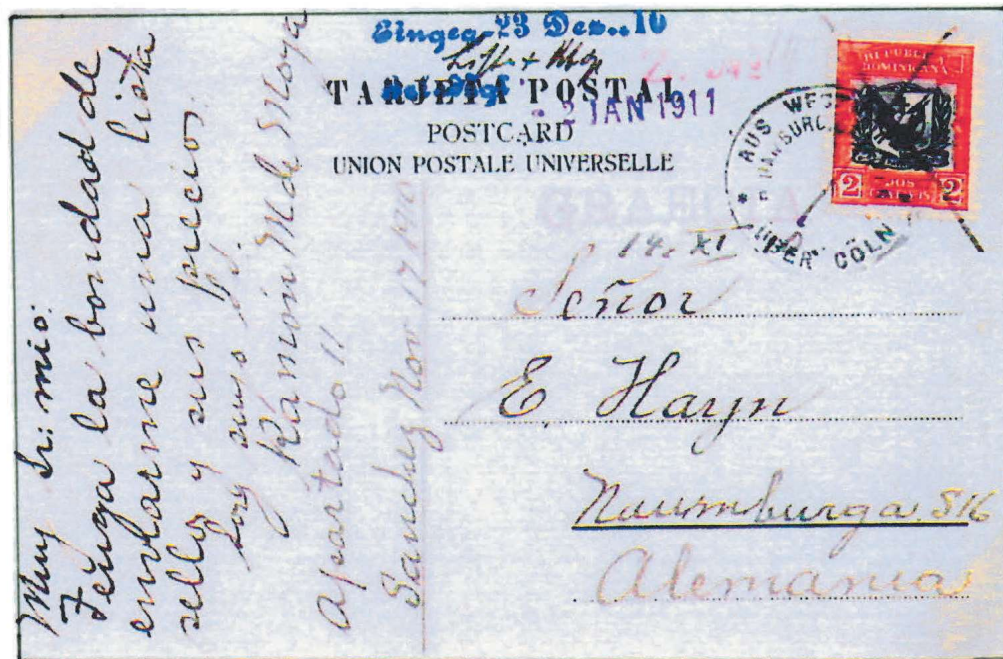 Eingeg. 23 Dez. 10
TARJETA POSTAL
2 JAN 1911
POSTCARD
UNION POSTALE UNIVERSELLE
REPUBLICA
DOMINICANA
2 DOS 2
CENTAVOS
AUS WEST
HAMBURG
ÜBER CÖLN
14. XI
Señor
E. Hayn
Naumburg a. S
Alemania
Muy Sr: mio:
Tenga la bondad de
enviarme una lista
sello y sus precios
soy suyo
Ramón M de Moya
Apartado 11
Sanchez Nov 17 1910